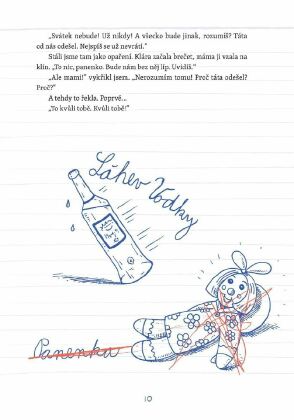 „Svátek nebude! Už nikdy! A všecko bude jinak, rozumíš? Táta
od nás odešel. Nejspíš se už nevrátí.“
Stáli jsme tam jako opaření. Klára začala brečet, máma ji vzala na
klín. „To nic, panenko. Bude nám bez něj líp. Uvidíš.“
„Ale mami!“ vykřikl jsem. „Nerozumím tomu! Proč táta odešel?
Proč?“
A tehdy to řekla. Poprvé...
„To kvůli tobě. Kvůli tobě!“
Láhev Vodky
Panenka
10